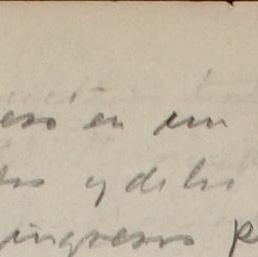 eso en un
y de los
ingresos p